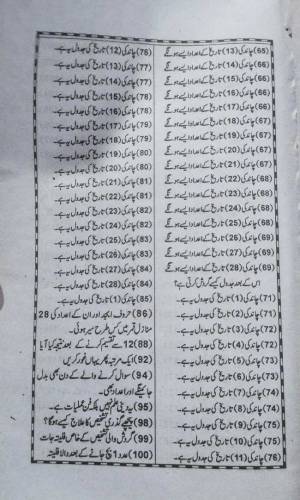 (65) چاند کی (13) تاریخ کے اعداد ایسے ہونگے
(66) چاند کی (14) تاریخ کے اعداد ایسے ہونگے
(66) چاند کی (15) تاریخ کے اعداد ایسے ہونگے
(66) چاند کی (16) تاریخ کے اعداد ایسے ہونگے
(66) چاند کی (17) تاریخ کے اعداد ایسے ہونگے
(67) چاند کی (18) تاریخ کے اعداد ایسے ہونگے
(67) چاند کی (19) تاریخ کے اعداد ایسے ہونگے
(67) چاند کی (20) تاریخ کے اعداد ایسے ہونگے
(67) چاند کی (21) تاریخ کے اعداد ایسے ہونگے
(68) چاند کی (22) تاریخ کے اعداد ایسے ہونگے
(68) چاند کی (23) تاریخ کے اعداد ایسے ہونگے
(68) چاند کی (24) تاریخ کے اعداد ایسے ہونگے
(68) چاند کی (25) تاریخ کے اعداد ایسے ہونگے
(69) چاند کی (26) تاریخ کے اعداد ایسے ہونگے
(69) چاند کی (27) تاریخ کے اعداد ایسے ہونگے
(69) چاند کی (28) تاریخ کے اعداد ایسے ہونگے
اس کے بعد جدول کیسے گردش کرتی ہے؟
(71) چاند کی (1) تاریخ کی جدول یہ ہے۔
(71) چاند کی (2) تاریخ کی جدول یہ ہے۔
(72) چاند کی (3) تاریخ کی جدول یہ ہے۔
(72) چاند کی (4) تاریخ کی جدول یہ ہے۔
(73) چاند کی (5) تاریخ کی جدول یہ ہے۔
(73) چاند کی (6) تاریخ کی جدول یہ ہے۔
(74) چاند کی (7) تاریخ کی جدول یہ ہے۔
(74) چاند کی (8) تاریخ کی جدول یہ ہے۔
(75) چاند کی (9) تاریخ کی جدول یہ ہے۔
(75) چاند کی (10) تاریخ کی جدول یہ ہے۔
(76) چاند کی (11) تاریخ کی جدول یہ ہے۔
(76) چاند کی (12) تاریخ کی جدول یہ ہے۔
(77) چاند کی (13) تاریخ کی جدول یہ ہے۔
(77) چاند کی (14) تاریخ کی جدول یہ ہے۔
(78) چاند کی (15) تاریخ کی جدول یہ ہے۔
(78) چاند کی (16) تاریخ کی جدول یہ ہے۔
(79) چاند کی (17) تاریخ کی جدول یہ ہے۔
(79) چاند کی (18) تاریخ کی جدول یہ ہے۔
(80) چاند کی (19) تاریخ کی جدول یہ ہے۔
(80) چاند کی (20) تاریخ کی جدول یہ ہے۔
(81) چاند کی (21) تاریخ کی جدول یہ ہے۔
(81) چاند کی (22) تاریخ کی جدول یہ ہے۔
(82) چاند کی (23) تاریخ کی جدول یہ ہے۔
(82) چاند کی (24) تاریخ کی جدول یہ ہے۔
(83) چاند کی (25) تاریخ کی جدول یہ ہے۔
(83) چاند کی (26) تاریخ کی جدول یہ ہے۔
(84) چاند کی (27) تاریخ کی جدول یہ ہے۔
(84) چاند کی (28) تاریخ کی جدول یہ ہے۔
(85) چاند کی (1) تاریخ کی جدول یہ ہے۔
(86) حروف ابجد اور ان کے اعداد کی 28
منازل قمر میں کس طرح سیر ہوتی۔
(88) 12 سے تقسیم کرنے کے بعد نتیجہ کیا آیا
(92) ایک مرتبہ پھر یہاں غور کریں
(94) سوال کرنے والے کے دن بھی بدل
جائینگے اور اعداد بھی۔
(95) یہ دینی علم نہیں بلکہ فن عملیات ہے۔
(98) پیچھے گذری تشخیص کا علاج کیسے ہوگا؟
(99) گردش والی تشخیص کے خاص فلیتہ جات
(100) عدد 1 بچ جانے کے بعد والا فلیتہ